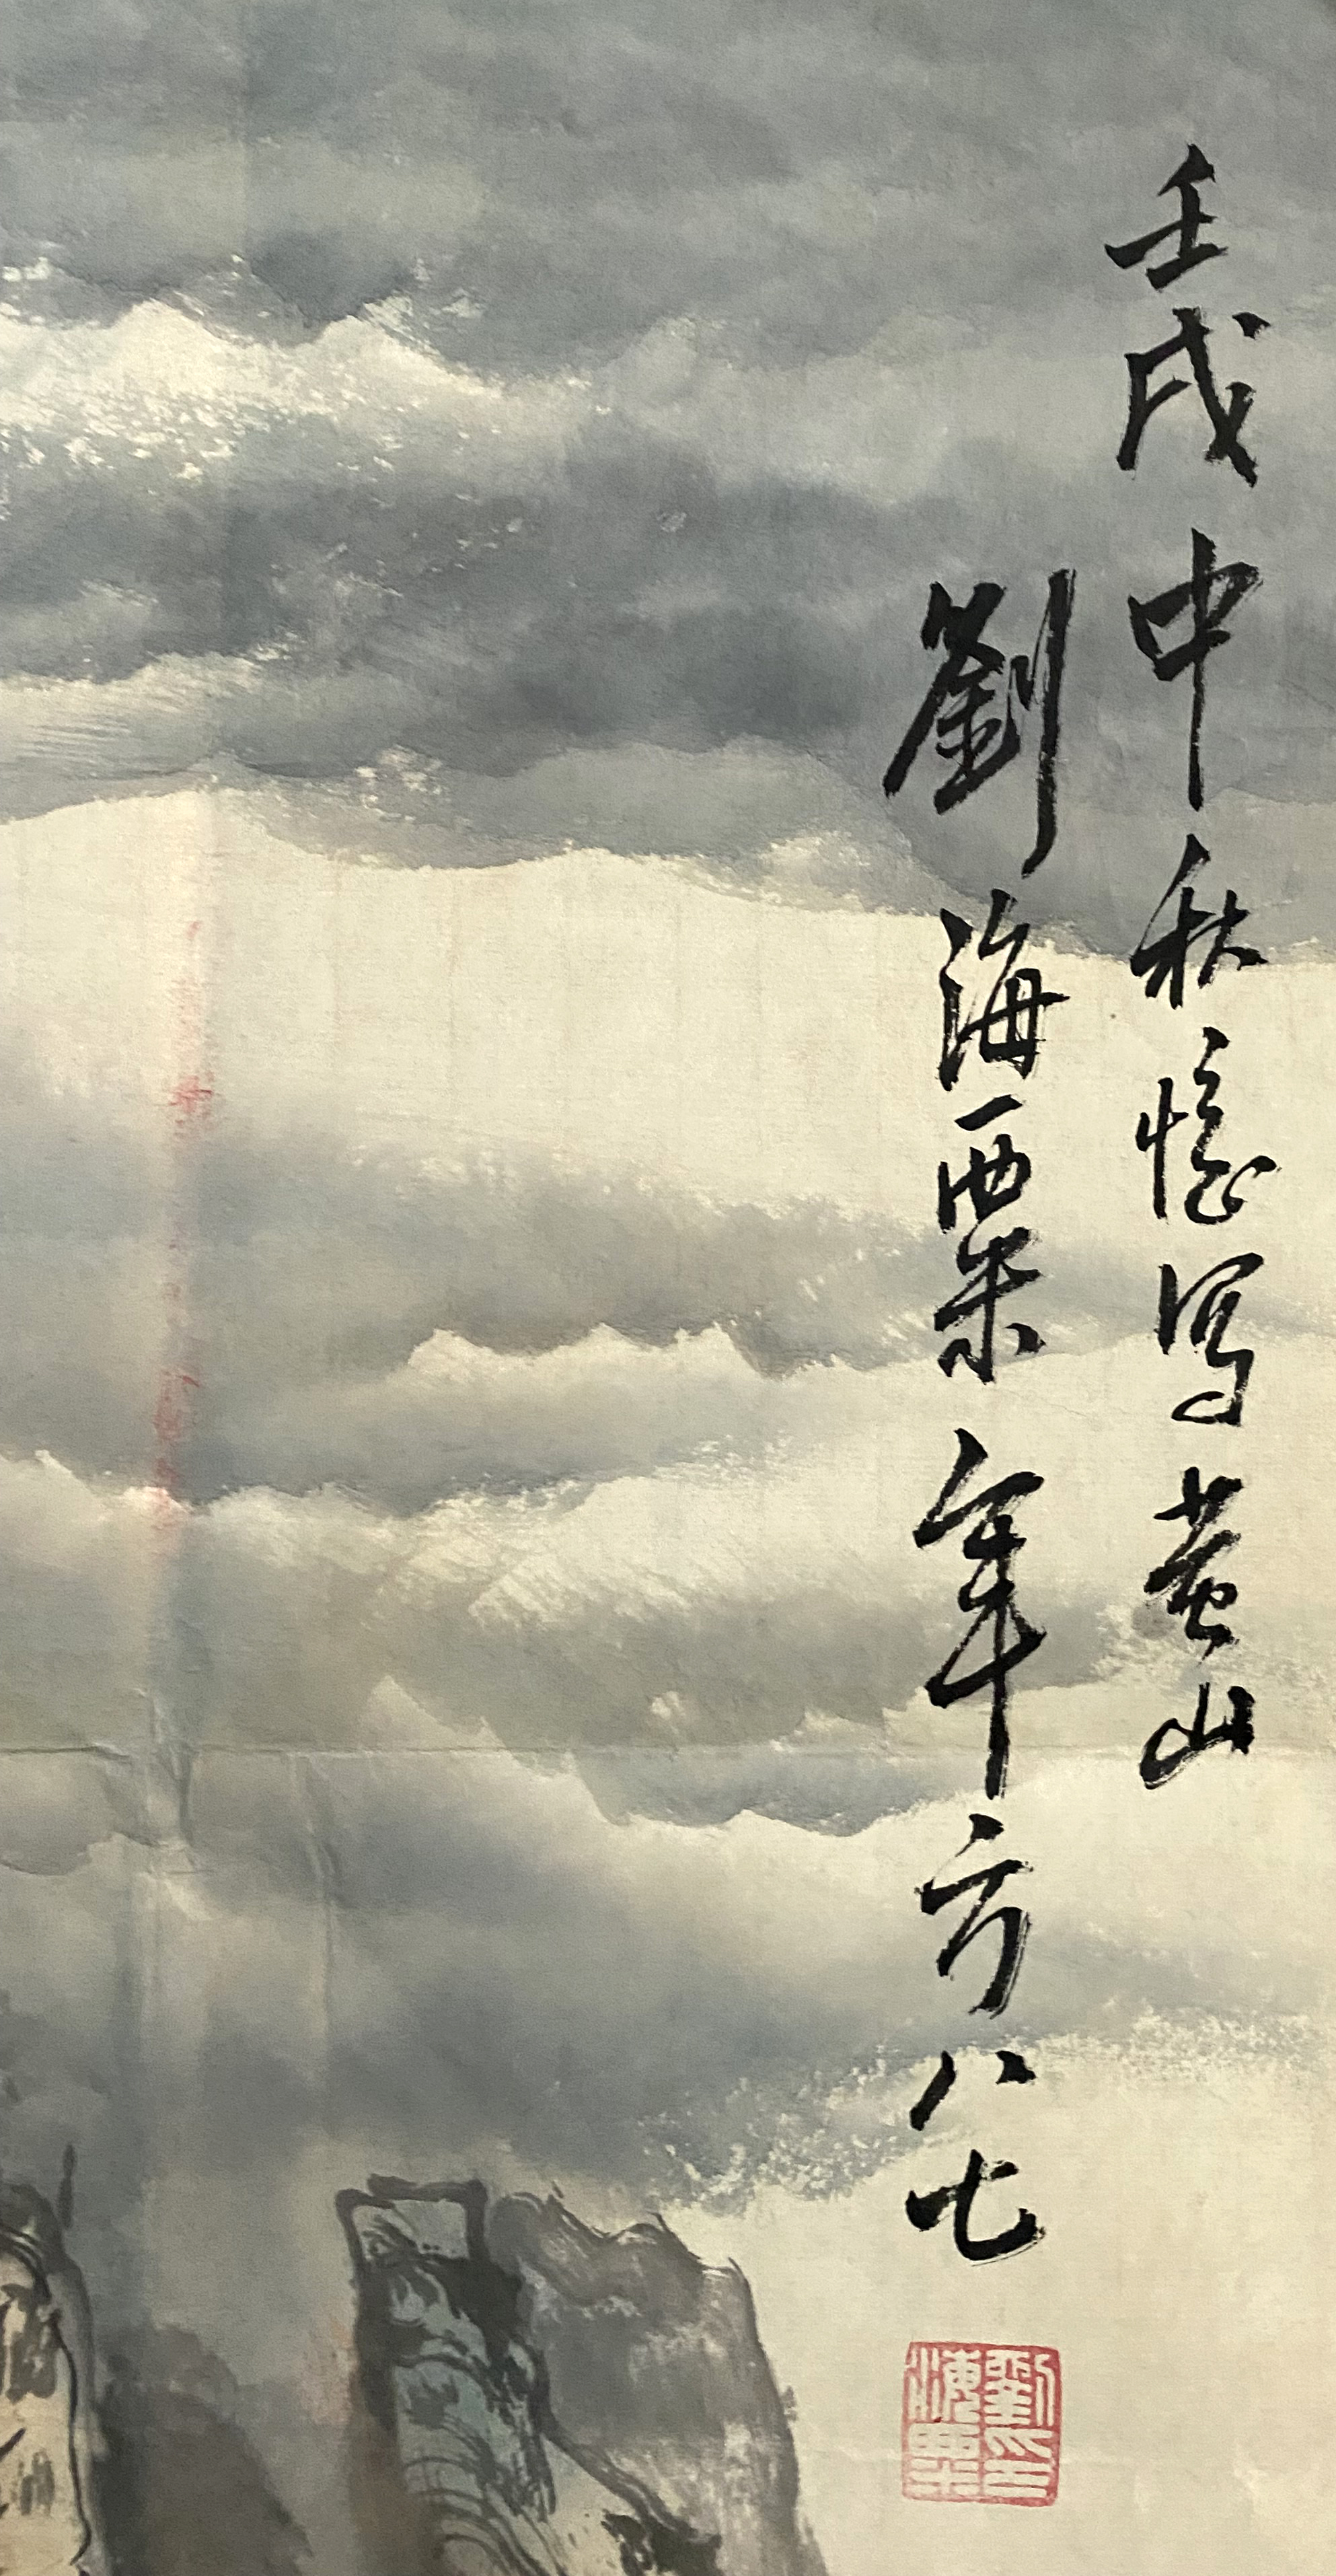 壬戌中秋憶寫黃山
劉海粟年方八七
劉海粟印